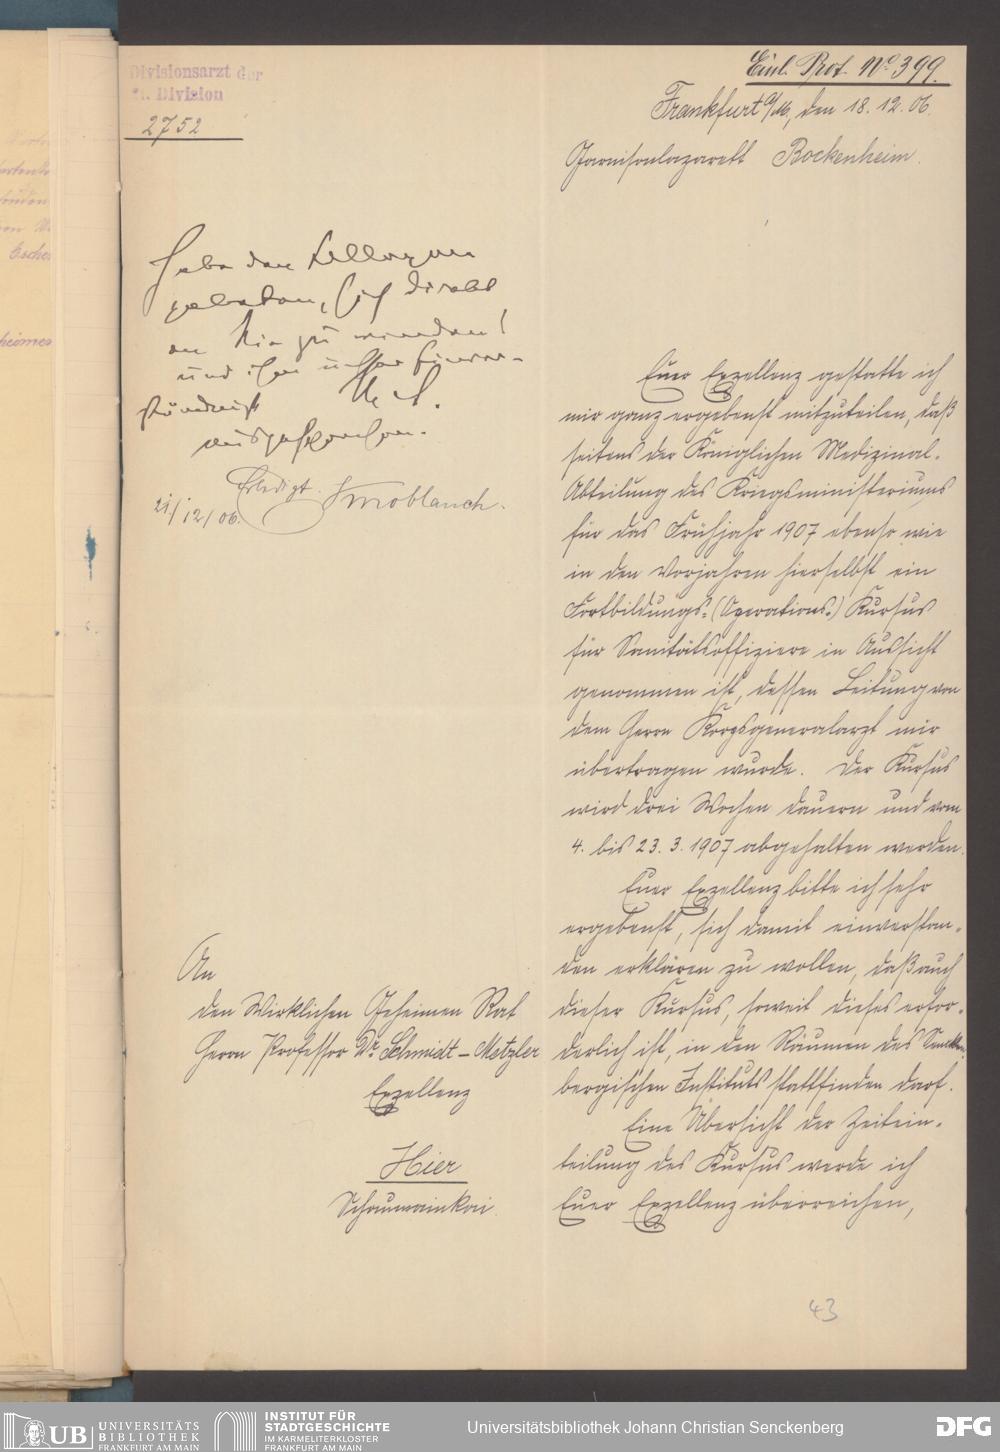 Divisionsarzt der
21. Division
2752
Einl. Prot. No. 399.
Frankfurt a/M, den 18. 12. 06.
Garnisonlazarett Bockenheim.
Habe den Kollegen
gebeten, sich direkt
an Sie zu wenden!
und ihm unser Einver-
ständniß
ausgesprochen.
Erledigt. Knoblauch.
21/12/06.
Euer Exzellenz gestatte ich
mir ganz ergebenst mitzuteilen, daß
seitens der Königlichen Medizinal-
Abteilung des Kriegsministeriums
für das Frühjahr 1907 ebenso wie
in den Vorjahren hierselbst ein
Fortbildungs-(Operations-) Kursus
für Sanitätsoffiziere in Aussicht
genommen ist, dessen Leitung von
dem Herrn Korpsgeneralarzt mir
übertragen wurde. Der Kursus
wird drei Wochen dauern und vom
4. bis 23. 3. 1907 abgehalten werden.
Euer Exzellenz bitte ich sehr
ergebenst, sich damit einverstan-
den erklären zu wollen, daß auch
dieser Kursus, soweit dieses erfor-
derlich ist, in den Räumen des Sencken-
bergischen Instituts stattfinden darf.
Eine Übersicht der Zeitein-
teilung des Kursus werde ich
Euer Exzellenz überreichen,
An
den Wirklichen Geheimen Rat
Herrn Professor Dr. Schmidt-Metzler
Exzellenz
Hier
Schaumainkai.
43
UB UNIVERSITÄTS
BIBLIOTHEK
FRANKFURT AM MAIN
INSTITUT FÜR
STADTGESCHICHTE
IM KARMELITERKLOSTER
FRANKFURT AM MAIN
Universitätsbibliothek Johann Christian Senckenberg
DFG